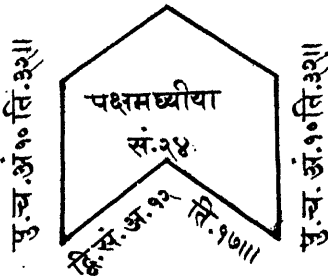 पु.च.अं.१०ति.३२॥
पक्षमध्यीया
सं.२४
द्वि.सं.अ.१२
ति.१७॥।
पु.च.अं.१०ति.३२॥